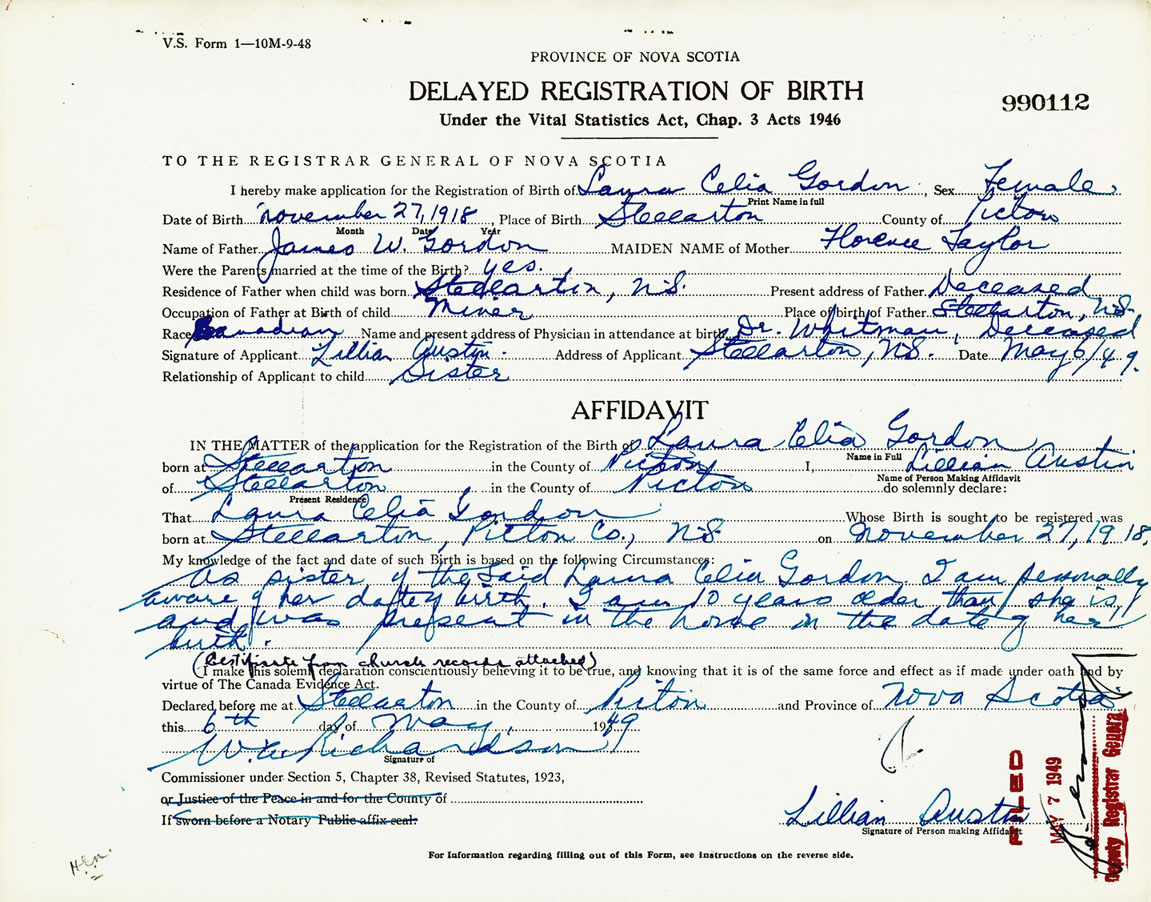 V.S. Form 1—10M-9-48
PROVINCE OF NOVA SCOTIA
DELAYED REGISTRATION OF BIRTH
990112
Under the Vital Statistics Act, Chap. 3 Acts 1946
TO THE REGISTRAR GENERAL OF NOVA SCOTIA
I hereby make application for the Registration of Birth of Laura Celia Gordon, Sex Female
Print Name in full
Date of Birth November 27, 1918, Place of Birth Stellarton County of Pictou
Month Date Year
Name of Father James W. Gordon MAIDEN NAME of Mother Florence Taylor
Were the Parents married at the time of the Birth? yes.
Residence of Father when child was born Stellarton, N.S. Present address of Father Deceased
Occupation of Father at Birth of child Miner Place of birth of Father Stellarton, N.S.
Race Canadian Name and present address of Physician in attendance at birth, Dr. Whitman, Deceased
Signature of Applicant Lillian Austin. Address of Applicant Stellarton, N.S. Date May 6/49.
Relationship of Applicant to child Sister
AFFIDAVIT
IN THE MATTER of the application for the Registration of the Birth of Laura Celia Gordon
Name in Full
born at Stellarton in the County of Pictou I, Lillian Austin
Name of Person Making Affidavit
of Stellarton in the County of Pictou do solemnly declare:
Present Residence
That Laura Celia Gordon Whose Birth is sought to be registered was
born at Stellarton, Pictou Co., N.S. on November 27, 1918.
My knowledge of the fact and date of such Birth is based on the following Circumstances:
As sister of the said Laura Celia Gordon, I am personally
aware of her date of birth. I am 10 years older than she is,
and was present in the home on the date of her
birth.
(Certificate from church records attached)
(I make this solemn declaration conscientiously believing it to be true, and knowing that it is of the same force and effect as if made under oath and by
virtue of The Canada Evidence Act.
Declared before me at Stellarton in the County of Pictou and Province of Nova Scotia
this 6th day of May, 1949
W. Richardson
Signature of
Commissioner under Section 5, Chapter 38, Revised Statutes, 1923,
or Justice of the Peace in and for the County of
If sworn before a Notary Public affix seal.
Lillian Austin
Signature of Person making Affidavit
FILED
MAY 7 1949
Deputy Registrar General
For Information regarding filling out of this Form, see instructions on the reverse side.